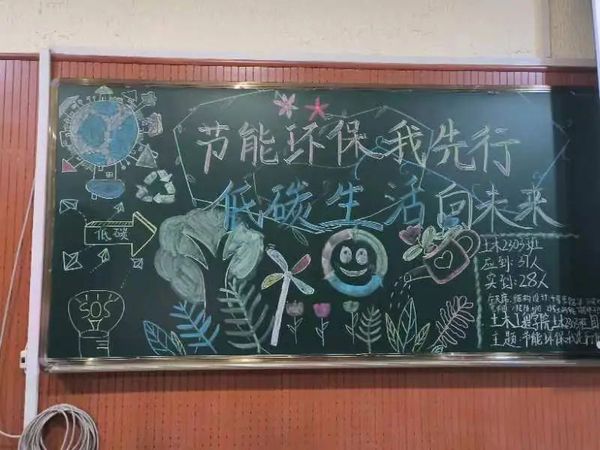 节能环保我先行
低碳生活向未来
低碳
SOS
土木2303班
应到:31人
实到:28人
土木工程学院土木2303班
主题:节能环保我先行